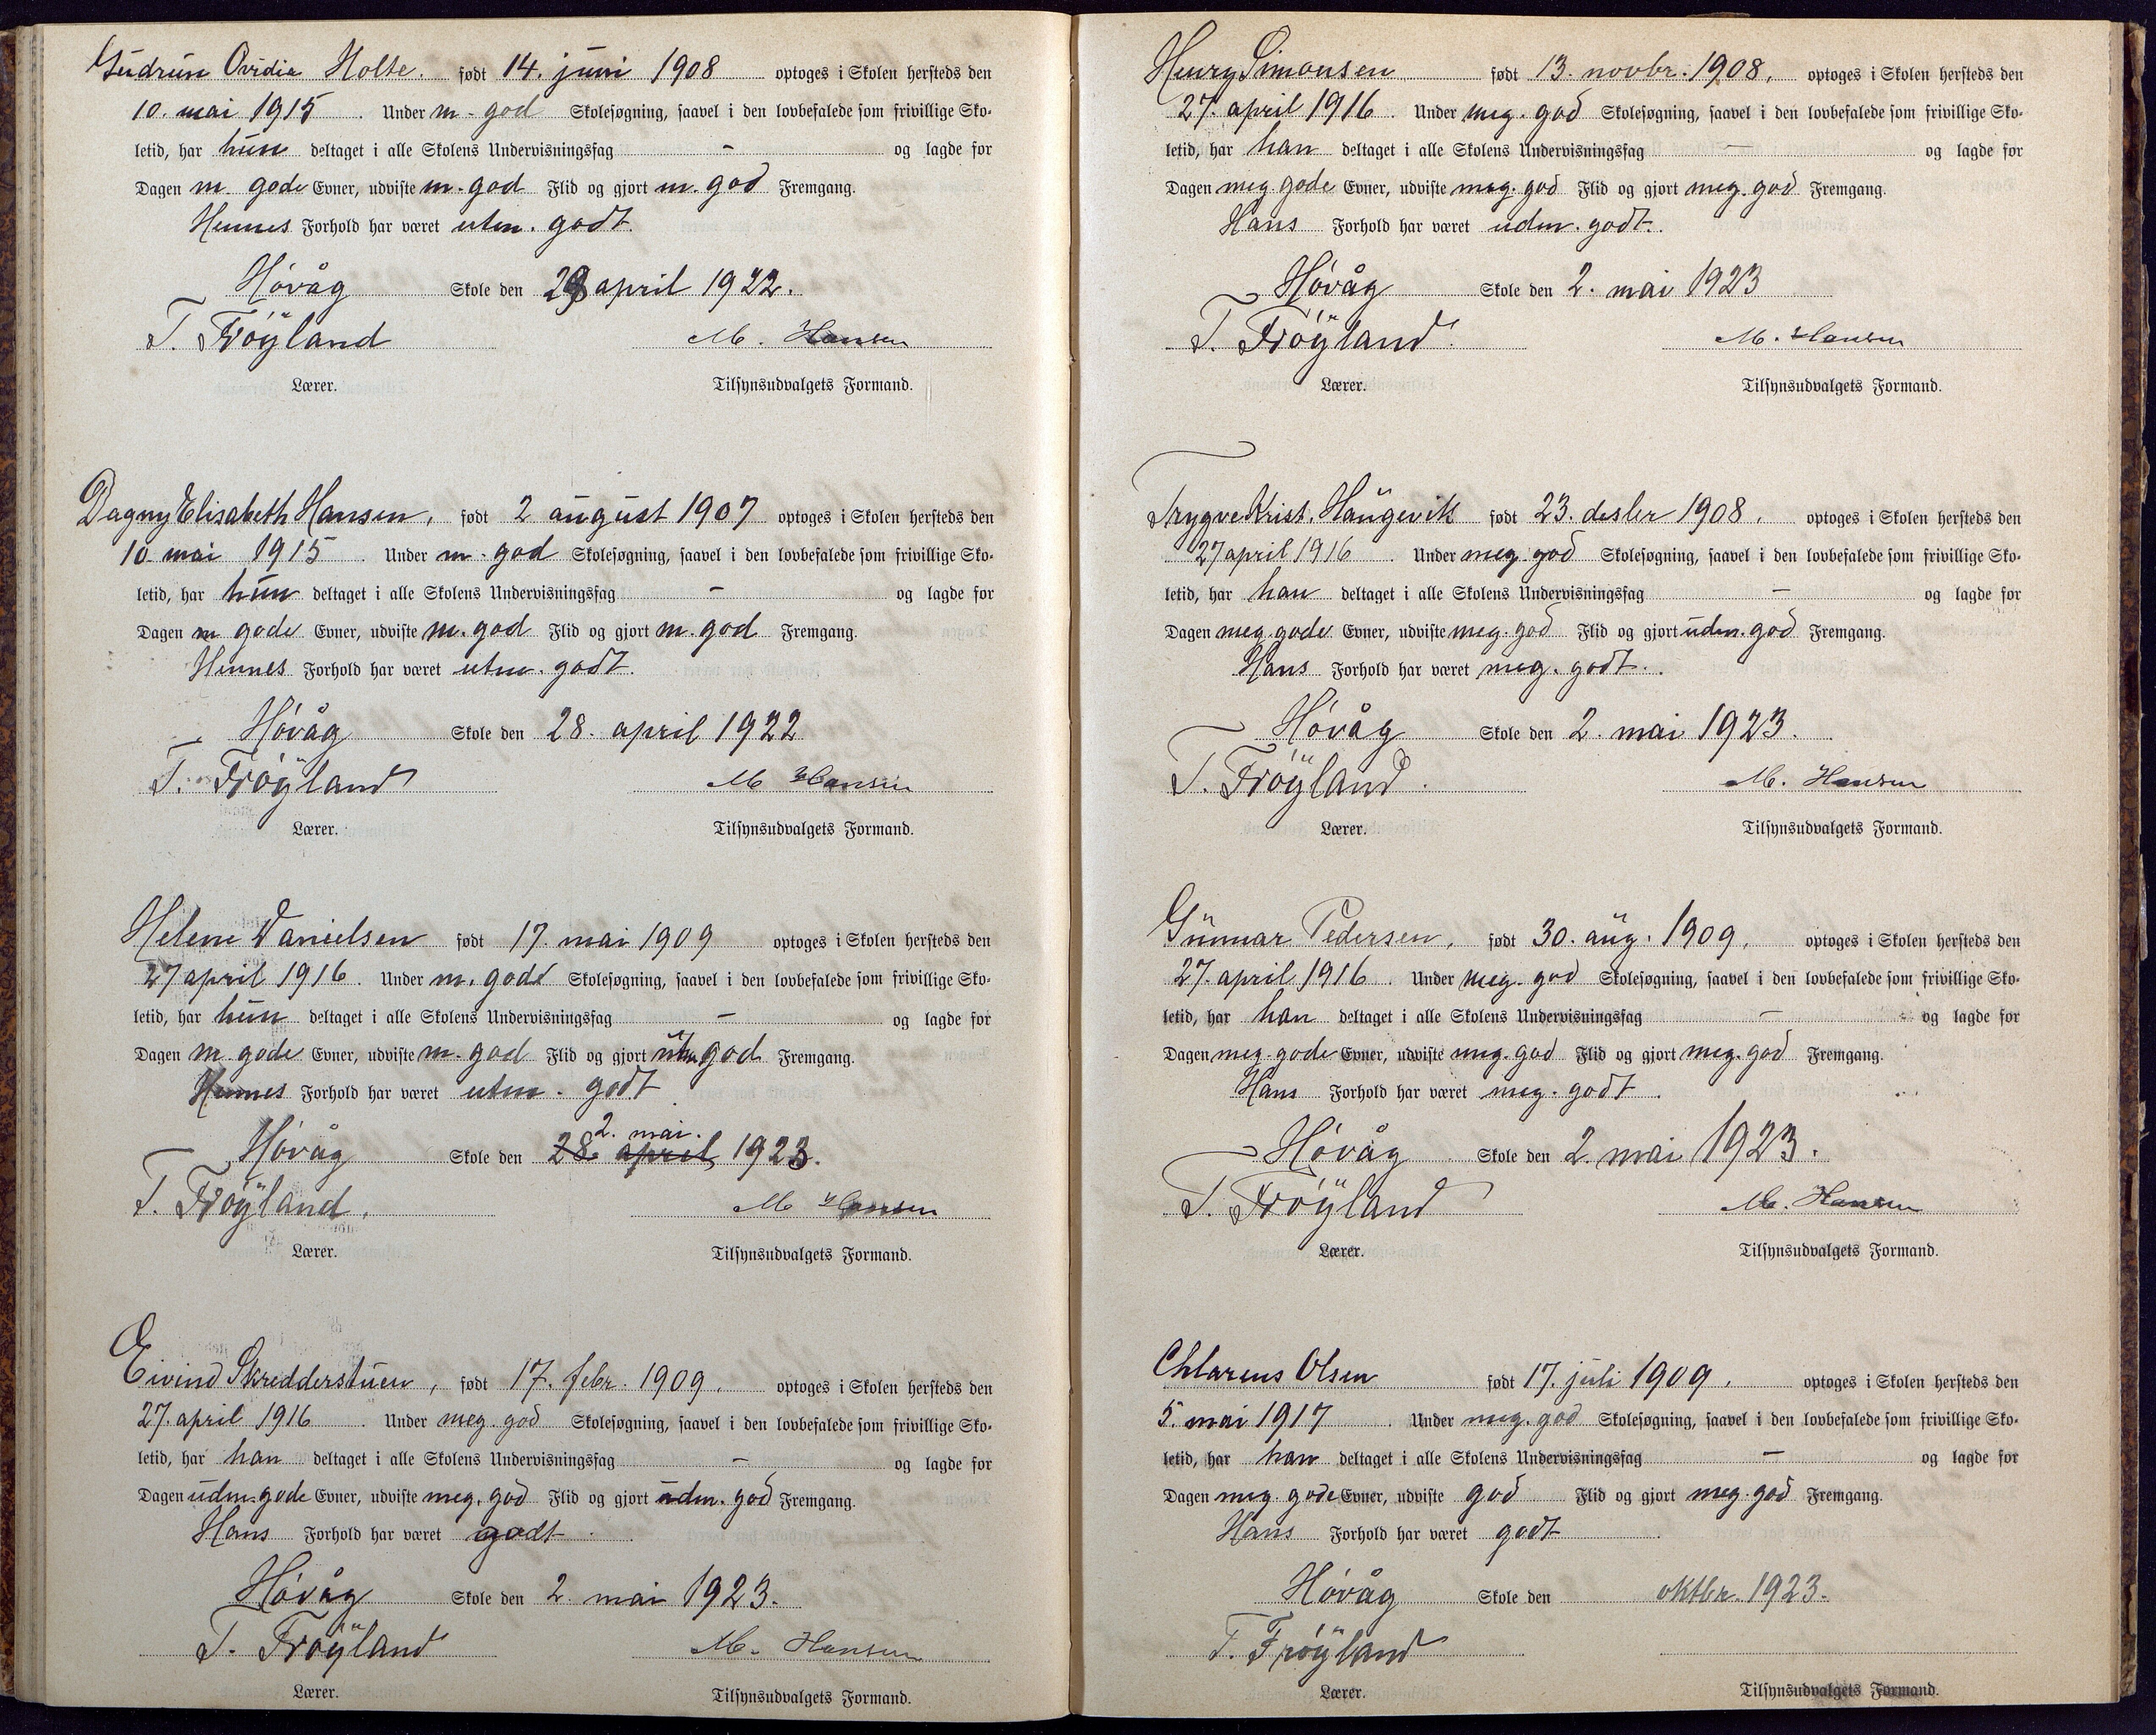 Gudrun Ovidia Holte. født 14. juni 1908 optoges i Skolen hersteds den
10. mai 1915. Under m. god Skolesøgning, saavel i den lovbefalede som frivillige Sko-
letid, har hun deltaget i alle Skolens Undervisningsfag - og lagde for
Dagen m. gode Evner, udviste m. god Flid og gjort m. god Fremgang.
Hennes Forhold har været utm. godt.
Høvåg Skole den 28 april 1922.
T. Frøyland M. Hansen
Lærer. Tilsynsudvalgets Formand.
Dagny Elisabeth Hansen, født 2 august 1907 optoges i Skolen hersteds den
10. mai 1915. Under m. god Skolesøgning, saavel i den lovbefalede som frivillige Sko-
letid, har hun deltaget i alle Skolens Undervisningsfag - og lagde for
Dagen m gode Evner, udviste m. god Flid og gjort m. god Fremgang.
Hennes Forhold har været utm. godt.
Høvåg Skole den 28. april 1922
T. Frøyland M Hansen
Lærer. Tilsynsudvalgets Formand.
Helene Danielsen født 17. mai 1909 optoges i Skolen hersteds den
27 april 1916. Under m. godt Skolesøgning, saavel i den lovbefalede som frivillige Sko-
letid, har hun deltaget i alle Skolens Undervisningsfag - og lagde for
Dagen m. gode Evner, udviste m. god Flid og gjort utm. god Fremgang.
Hennes Forhold har været utm. godt
2. mai.
Høvåg Skole den 28. april 1923.
T. Frøyland. M Hansen
Lærer. Tilsynsudvalgets Formand.
Eivind Skredderstuen, født 17. febr. 1909. optoges i Skolen hersteds den
27. april 1916. Under meg. god Skolesøgning, saavel i den lovbefalede som frivillige Sko-
letid, har han deltaget i alle Skolens Undervisningsfag - og lagde for
Dagen udm. gode Evner, udviste meg. god Flid og gjort udm. god Fremgang.
Hans Forhold har været godt.
Høvåg Skole den 2. mai 1923.
T. Frøyland M. Hansen
Lærer. Tilsynsudvalgets Formand.
Henry Simonsen født 13. novbr. 1908. optoges i Skolen hersteds den
27. april 1916. Under meg. god Skolesøgning, saavel i den lovbefalede som frivillige Sko-
letid, har han deltaget i alle Skolens Undervisningsfag - og lagde for
Dagen meg. gode Evner, udviste meg. god Flid og gjort meg. god Fremgang.
Hans Forhold har været udm. godt.
Høvåg Skole den 2. mai 1923
T. Frøyland. M. Hansen
Lærer. Tilsynsudvalgets Formand.
Trygve Krist. Haugevik født 23. desbr 1908. optoges i Skolen hersteds den
27 april 1916. Under meg. god Skolesøgning, saavel i den lovbefalede som frivillige Sko-
letid, har han deltaget i alle Skolens Undervisningsfag - og lagde for
Dagen meg. gode Evner, udviste meg. god Flid og gjort udm. god Fremgang.
Hans Forhold har været meg. godt.
Høvåg Skole den 2. mai 1923.
T. Frøyland. M. Hansen
Lærer. Tilsynsudvalgets Formand.
Gunnar Pedersen, født 30. aug. 1909. optoges i Skolen hersteds den
27. april 1916. Under meg. god Skolesøgning, saavel i den lovbefalede som frivillige Sko-
letid, har han deltaget i alle Skolens Undervisningsfag - og lagde for
Dagen meg. gode Evner, udviste meg. god Flid og gjort meg. god Fremgang.
Hans Forhold har været meg. godt.
Høvåg Skole den 2. mai 1923.
T. Frøyland M. Hansen
Lærer. Tilsynsudvalgets Formand.
Chlarens Olsen født 17. juli 1909. optoges i Skolen hersteds den
5. mai 1917. Under meg. god Skolesøgning, saavel i den lovbefalede som frivillige Sko-
letid, har han deltaget i alle Skolens Undervisningsfag - og lagde for
Dagen meg. gode Evner, udviste god Flid og gjort meg. god Fremgang.
Hans Forhold har været godt.
Høvåg Skole den oktbr. 1923.
T. Frøyland
Lærer. Tilsynsudvalgets Formand.